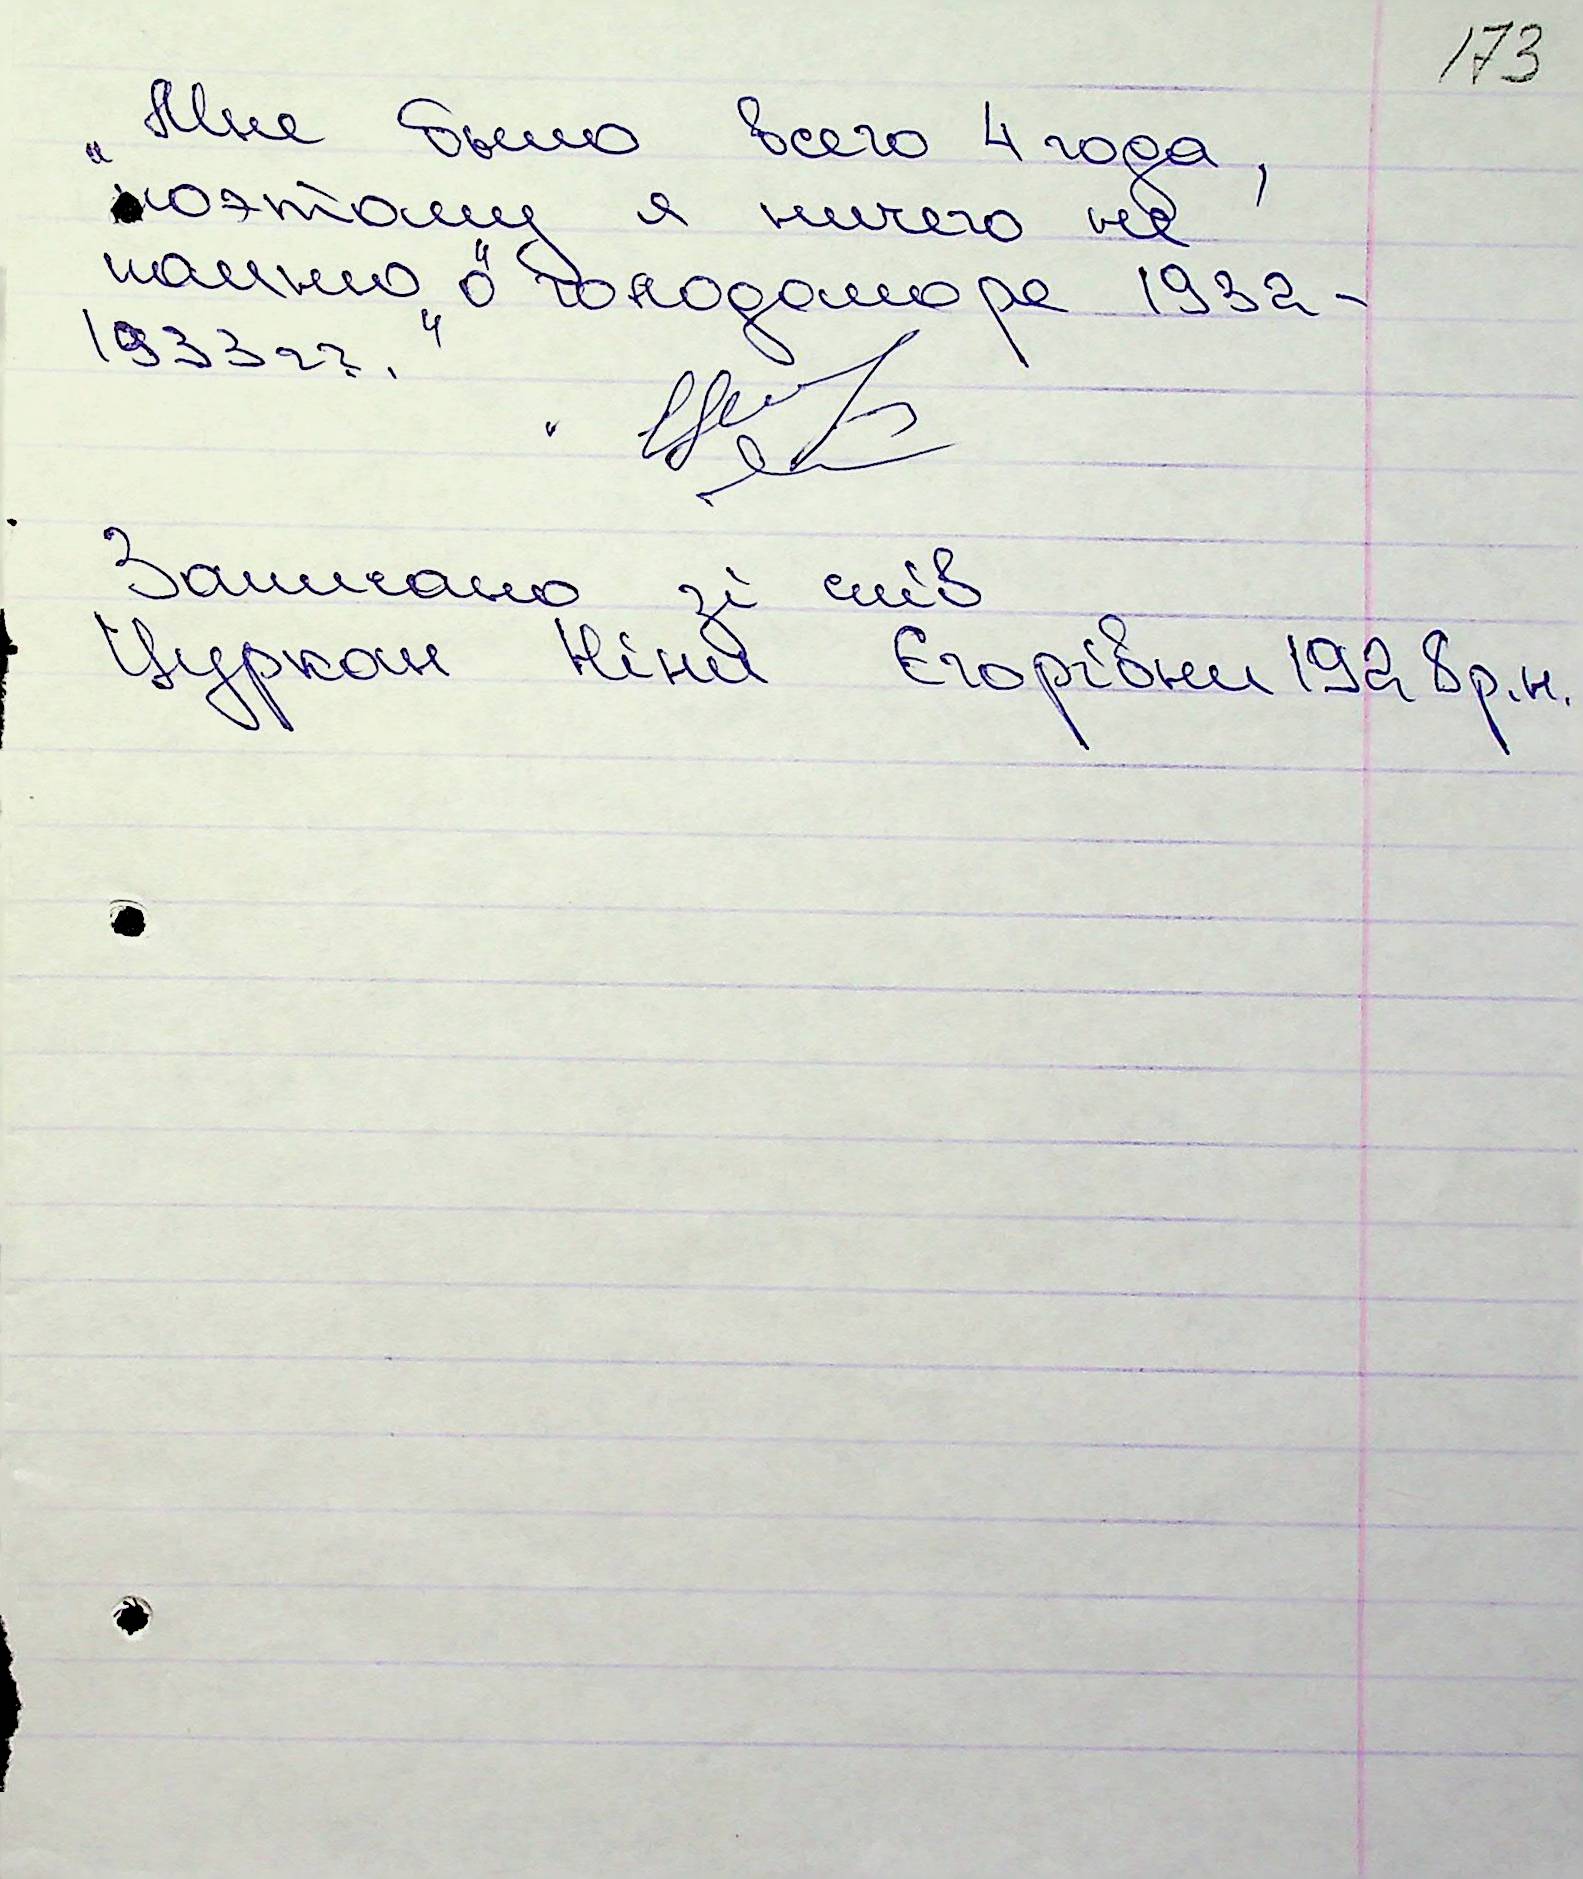 173
„Мне было всего 4 года,
поэтому я ничего не
помню" о голодоморе 1932-
1933гг."
Записано зі слів
Цуркан Ніни Єгорівни 1928р.н.